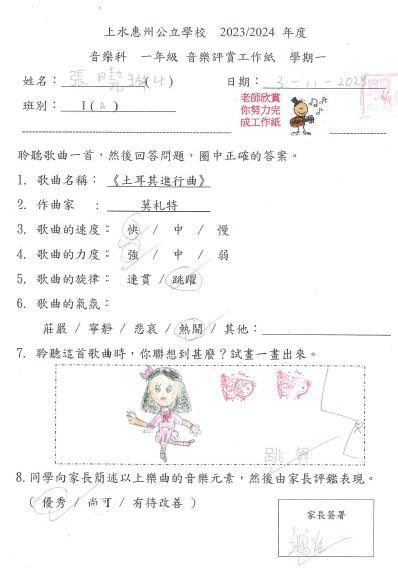 上水惠州公立學校 2023/2024 年度
音樂科 一年級 音樂評賞工作紙 學期一
姓名：張
日期：3-11-2023
班別：1(A)
老師欣賞
你努力完
成工作紙
聆聽歌曲一首，然後回答問題，圈中正確的答案。
1. 歌曲名稱：《土耳其進行曲》
2. 作曲家 ： 莫札特
3. 歌曲的速度： 快 / 中 / 慢
4. 歌曲的力度： 強 / 中 / 弱
5. 歌曲的旋律： 連貫 / 跳躍
6. 歌曲的氣氛：
莊嚴 / 寧靜 / 悲哀 / 熱鬧 / 其他：
7. 聆聽這首歌曲時，你聯想到甚麼？試畫一畫出來。
跳舞
8. 同學向家長簡述以上樂曲的音樂元素，然後由家長評鑑表現。
( 優秀 / 尚可 / 有待改善 )
家長簽署